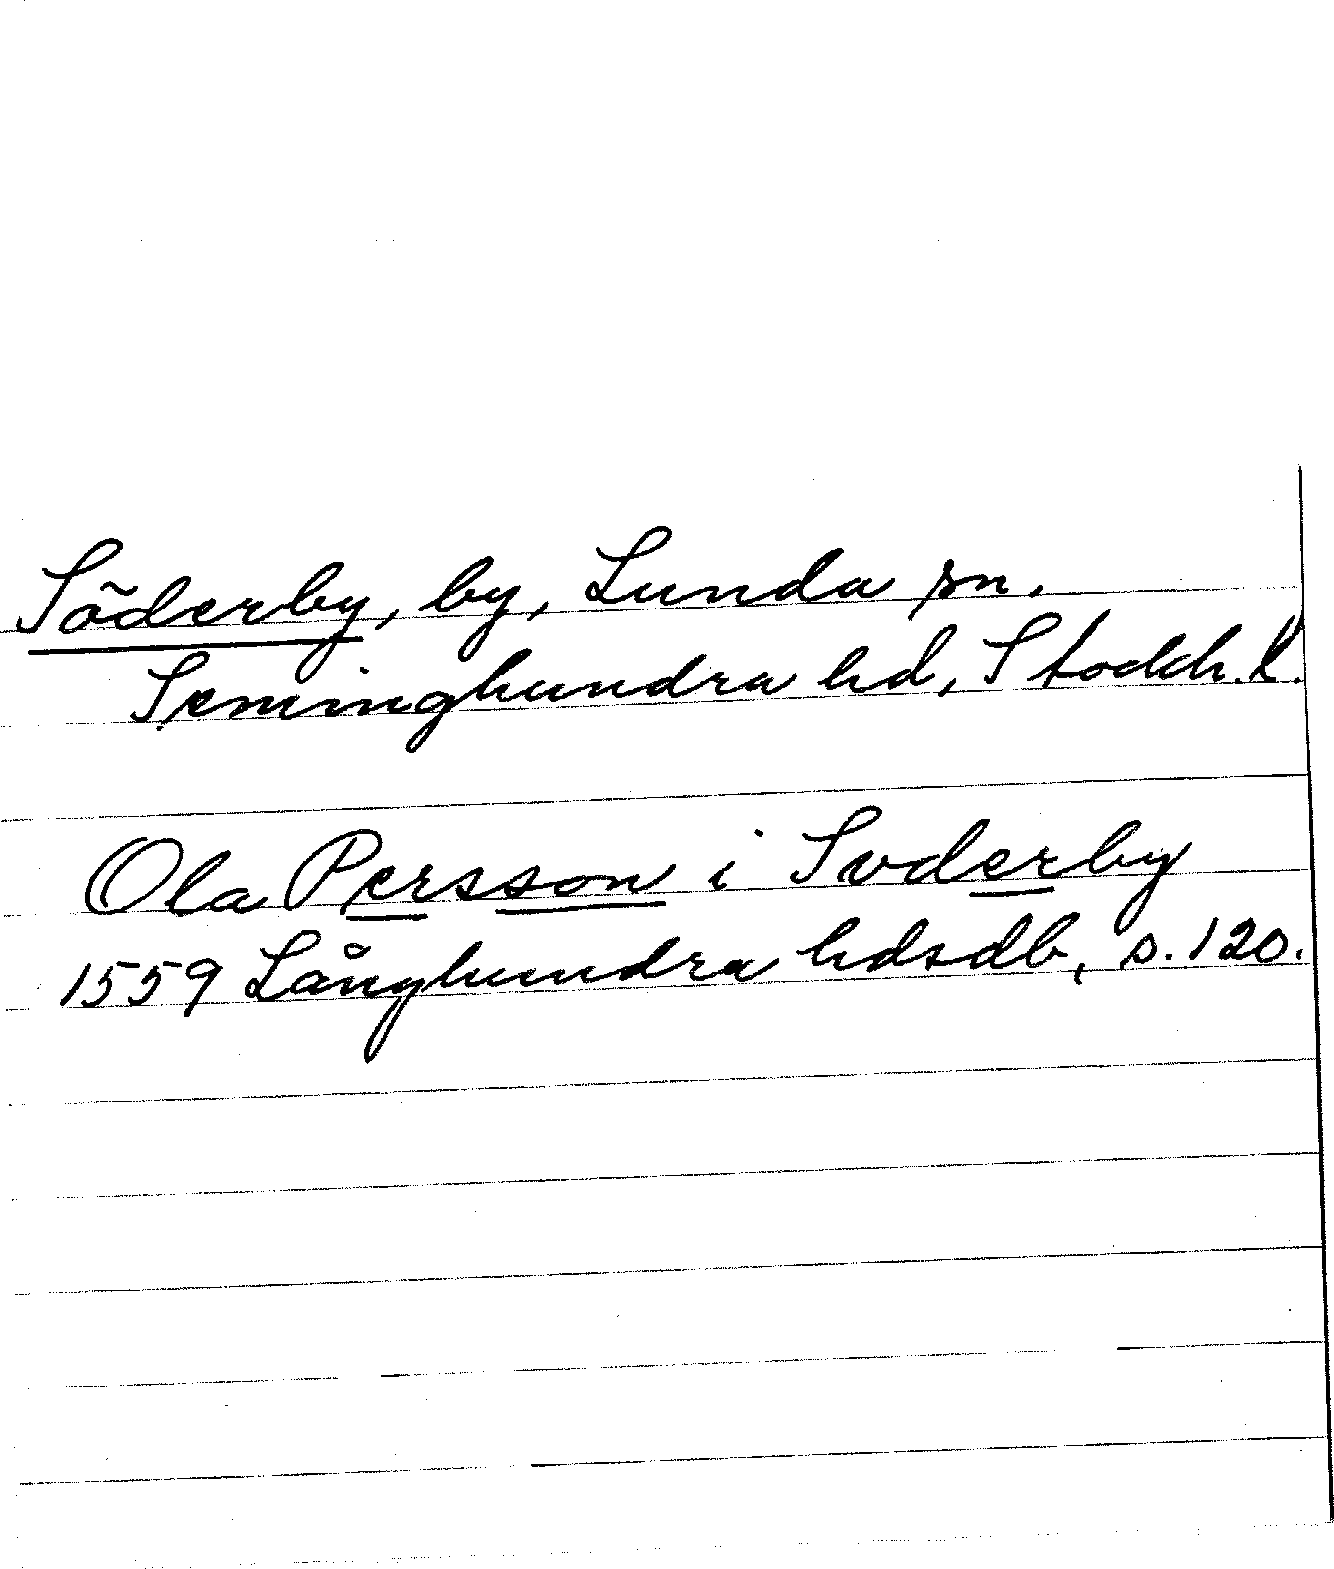 Söderby, by, Lunda sn.
Seminghundra hd, Stockh. l.
Ola Persson i Suderby
1559 Långhundra hdsdb, s. 120.